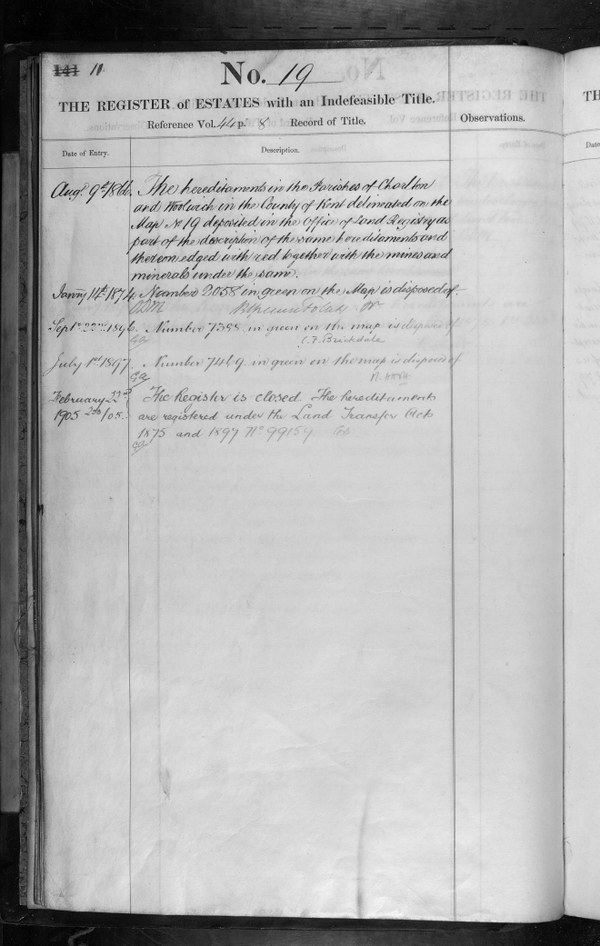 141 11
No. 19
THE REGISTER of ESTATES with an Indefeasible Title.
Reference Vol. 44 p. 8 Record of Title.
Observations.
Date of Entry.
Description.
Augt. 9th 1866. The hereditaments in the Parishes of Charlton
and Woolwich in the County of Kent delineated on the
Map No 19 deposited in the Office of Land Registry as
part of the description of the same hereditaments and
thereon edged with red together with the mines and
minerals under the same.
Janry 14th 1874 Number 2058 in green on the Map is disposed of.
Sept 22nd Number 7388 in green on the map is disposed of
C. F. Brickdale
July 1st 1897 Number 7469 in green on the map is disposed of
February 22nd The Register is closed The hereditaments
1905 /05. are registered under the Land Transfer Acts
1875 and 1897 No 99159
TH
Date